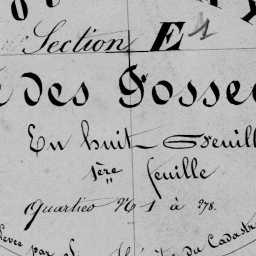 Section E 1
des Fosse
En huit feuill
1ère feuille
Quartier N 1 à 278.
Levée par
du Cadastr